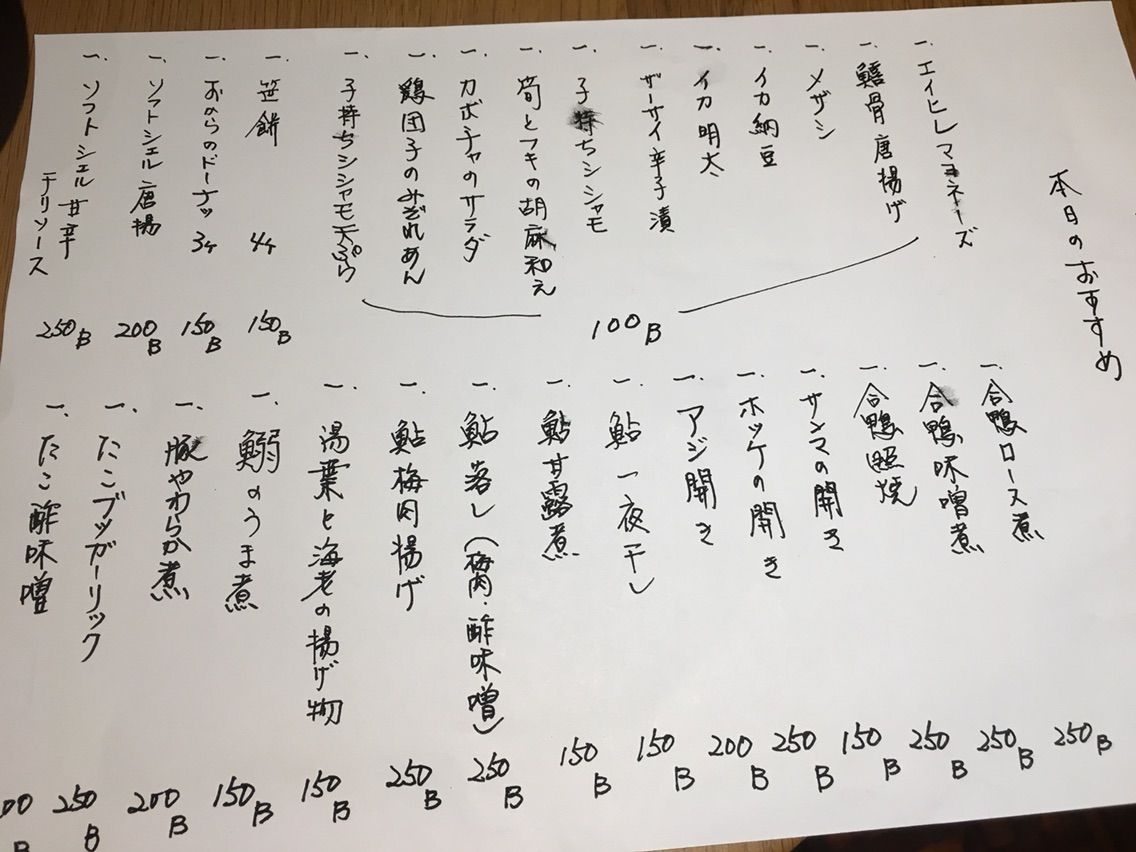 本日のおすすめ
一、エイヒレマヨネーズ
一、鱚骨唐揚げ
一、メザシ
一、イカ納豆
一、イカ明太
一、ザーサイ辛子漬
一、子持ちシシャモ
一、筍とフキの胡麻和え
一、カボチャのサラダ
一、鶏団子のみぞれあん
一、子持ちシシャモ天ぷら
100B
一、笹餅 4ヶ 150B
一、おからのドーナッツ 3ヶ 150B
一、ソフトシェル唐揚 200B
一、ソフトシェル甘辛
チリソース 250B
一、合鴨ロース煮 250B
一、合鴨味噌煮 250B
一、合鴨照焼 250B
一、サンマの開き 150B
一、ホッケの開き 250B
一、アジ開き 200B
一、鮎一夜干し 150B
一、鮎甘露煮 150B
一、鮎落し(梅肉・酢味噌) 250B
一、鮎梅肉揚げ 250B
一、湯葉と海老の揚げ物 150B
一、鰯のうま煮 150B
一、豚やわらか煮 200B
一、たこブツガーリック 250B
一、たこ酢味噌